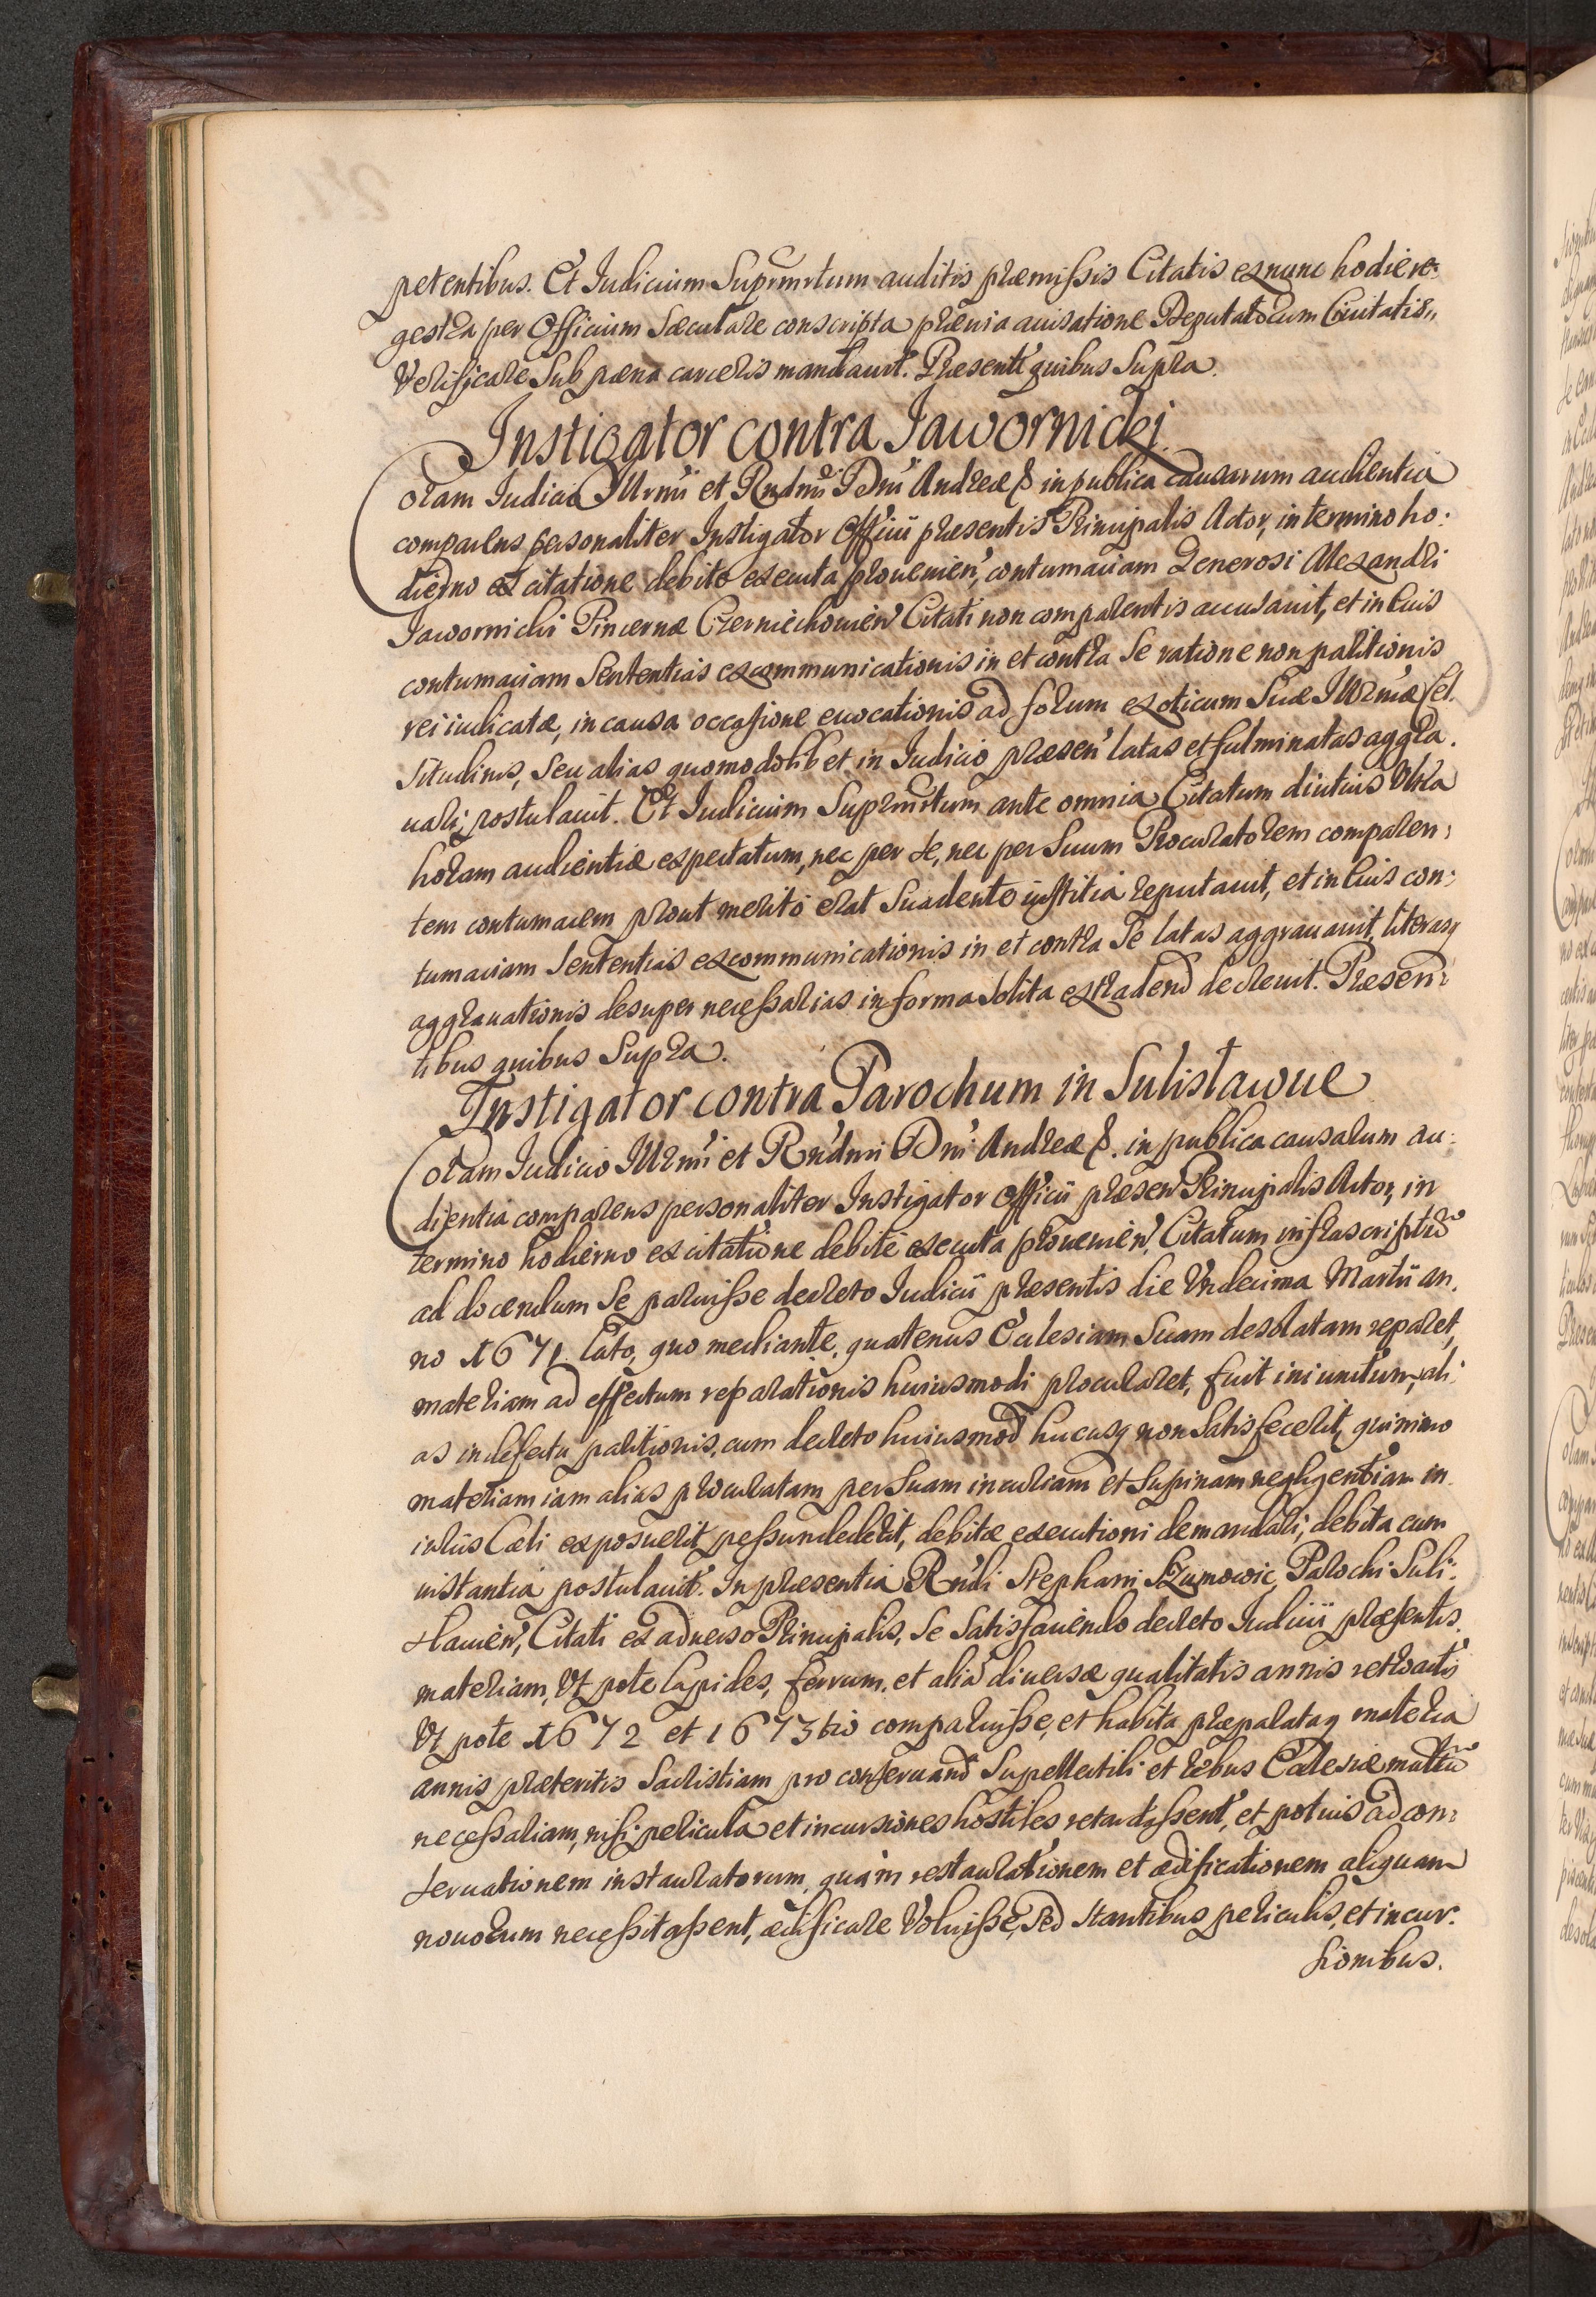 petentibus. Et Iudicium Suprmrtum auditis præmissis Citatis ex nunc hodie re-
gestra per Officium Sæculare conscripta prævia avisatione Deputatorum Civitatis,,
Verificare sub pæna carceris mandavit. Præsentt' quibus Supra.
Instigator contra Jawornickj
Coram Iudicio Illrmi et Rndmi Dni Andreæ &. in publica causarum audientia
comparens personaliter Instigator Officii præsentis Principalis Actor, in termino ho:
dierno ex citatione debite executa provenien', contumaciam Generosi Alexandri
Jawornicki Pincernæ Czerniechovien' Citati non comparentis accusavit, et in eius
contumaciam Sententias excommunicationis in et contra Se ratione non paritionis
rei iudicatæ, in causa occasione evocationis ad forum exoticum Suæ Illrmæ Cel.
situdinis, seu alias quomodolibet in Iudicio præsen' latas et fulminatas aggra.
vari, postulavit. Et Iudicium Suprmrtum ante omnia Citatum diutius Ultra
horam audientiæ expectatum, nec per se, nec per Suum Procuratorem comparen:
tem contumacem prout merito erat Suadente iustitia reputavit, et in eius con:
tumaciam Sententias excommunicationis in et contra Se latas aggravavit, literasq
aggravationis desuper necessarias in forma Solita extradend decrevit. Præsen:
tibus quibus Supra.
Instigator contra Parochum in Sulisławue
Coram Iudicio Illrmi et Rndmi Dni Andreæ &. in publica causarum au:
dientia comparens personaliter Instigator Officii præsen' Principalis Actor, in
termino hodierno ex citatione debite executa provenien', Citatum infrascriptum
ad docendum Se paruisse decreto Iudicii præsentis die Undecima Martii an.
no 1671 lato, quo mediante, quatenus Ecclesiam Suam desolatam reparet,
materiam ad effectum reparationis huiusmodi procuraret, fuit iniunctum, ali:
as in defectu paritionis, cum decreto huiusmod hucusq non Satisfecerit, quinimo
materiam iam alias procuratam per Suam incuriam et Supinam negligentiam in
iuriis Cæli exposuerit pessundederit, debitæ executioni demandari, debita cum
instantia postulavit. In præsentia Rndi Stephani Szumowic, Parochi Suli:
slavien', Citati ex adverso Principalis, Se Satisfaciendo decreto Iudicii præsentis,
materiam, Ut pote lapides, ferrum, et alia diversæ qualitatis annis retroactis
Ut pote 1672 et 1673tio comparuisse, et habita præparataq materia
annis præteritis Sacristiam pro conservand Supellectili et rebus Ecclesiæ
necessariam, nisi pericula et incursiones hostiles retardassent, et potius ad con:
servationem instauratorum, quàm restaurationem et ædificationem aliquam
novorum necessitassent, ædificare Voluisse, Sed stantibus periculis, et incur:
sionibus.